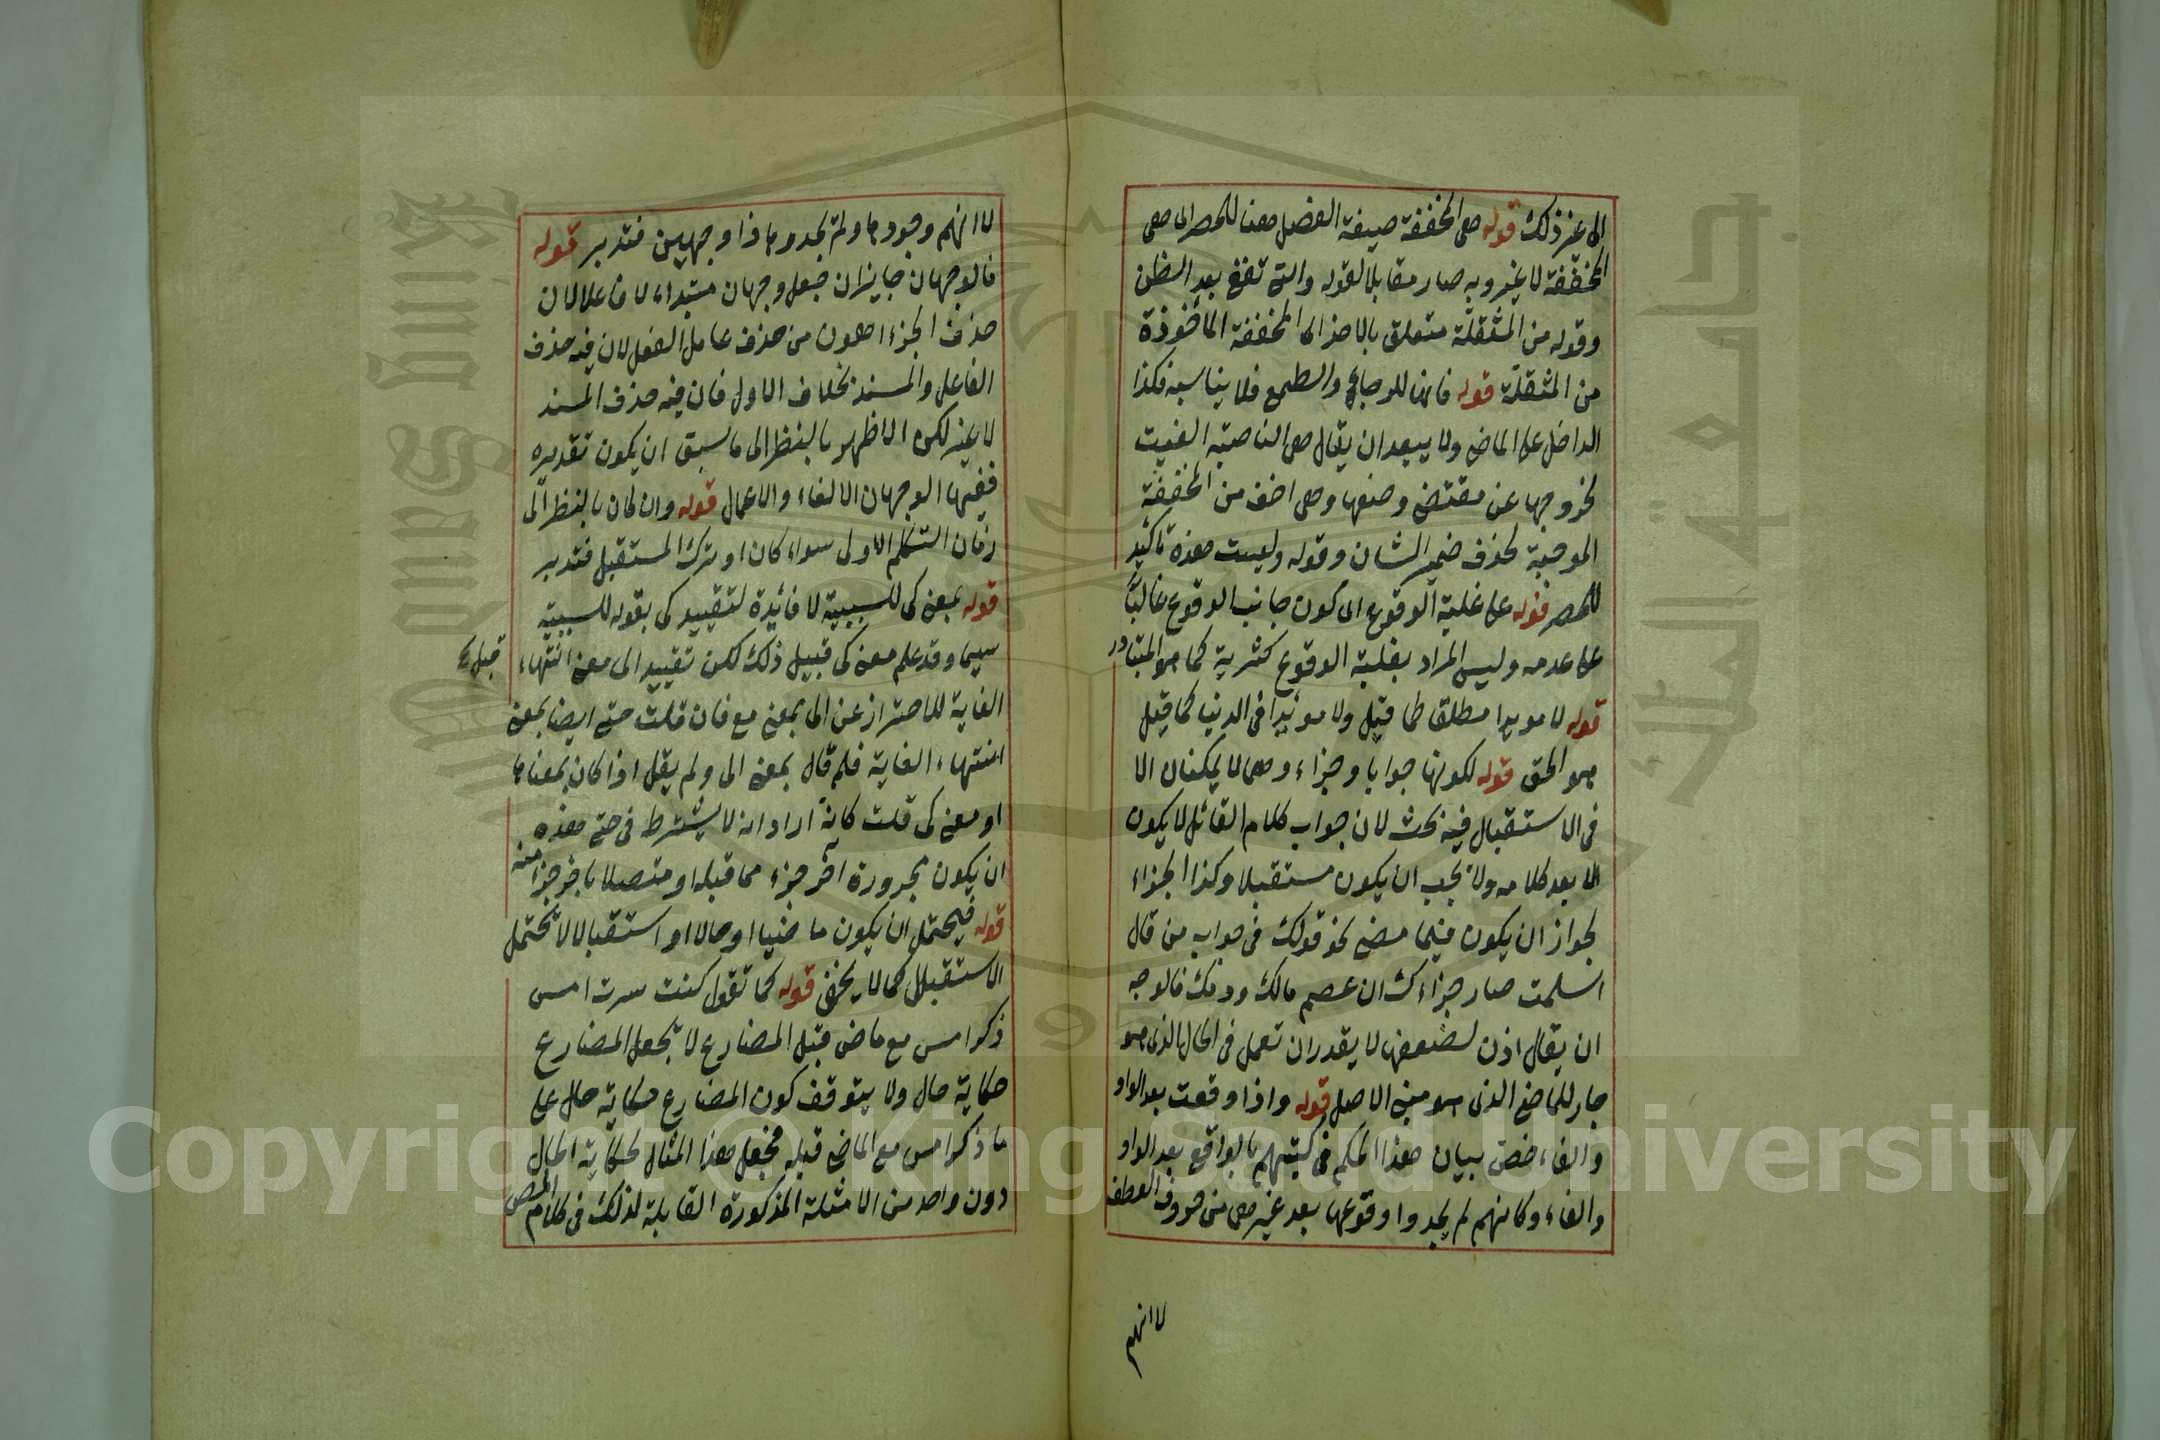 الى غير ذلك قوله هى المخففة صيغة الفصل هنا للحصر اى هى
المخففة لا غير وبه صار مقابلا لقوله والتى تقع بعد الظن
وقوله من المثقلة متعلق بالاخذ اى المخففة المأخوذة
من المثقلة قوله فانها للرجاء والطمع فلا يناسبه فكذا
الداخل على الماضى ولا يبعد ان يقال هى الناصبة الغيت
لخروجها عن مقتضى وضعها وهى اخف من المخففة
الموجبة لحذف ضمير الشان وقوله وليست هذه تاكيد
للحصر قوله على غلبة الوقوع اى كون جانب الوقوع غالبا
على عدمه وليس المراد بغلبة الوقوع كثرية كما هو المتبادر
قوله لا مويدا مطلقا كما قيل ولا مويدا فى الدنيا كما قيل
هو الحق قوله لكونها جوابا وجزاء وهما لا يمكنان الا
فى الاستقبال فيه بحث لان جواب كلام القائل لا يكون
الا بعد كلامه ولا يجب ان يكون مستقبلا وكذا الجزاء
لجواز ان يكون فيما مضى نحو قولك فى جواب من قال
اسلمت صار جزاءك ان عصم مالك ودمك فالوجه
ان يقال اذن لضعفها لا يقدر ان تعمل فى الحال الذى هو
جار للماضى الذى هو مبنى الاصل قوله واذا وقعت بعد الواو
والفاء خص بيان هذا الحكم فى كتبهم بالواقع بعد الواو
والفاء وكانهم لم يجدوا وقوعها بعد غيرهما من حروف العطف
لا انهم
لا انهم وجودها ولم يجدوها ذا وجهين فتدبر قوله
فالوجهان جايزان جعل وجهان مبتداء لا فاعلا لان
حذف الجزء اهون من حذف عامل الفعل لان فيه حذف
الفاعل والمسند بخلاف الاول فان فيه حذف المسند
لا غير لكن الاظهر بالنظر الى ما سبق ان يكون تقديره
ففيها الوجهان الالغاء والاعمال قوله وان كان بالنظر الى
زمان التكلم الاولى سواء كان او ترك المستقبل فتدبر
قوله بمعنى كى للسببية لا فائدة لتقييد كى بقوله للسببية
سيما وقد علم معنى كى قبيل ذلك لكن تقييد الى معنى انتهاء
الغاية للاحتراز عن الى بمعنى مع فان قلت حتى ايضا بمعنى
انتهاء الغاية فلم قال بمعنى الى ولم يقل اذا كان بمعناها
او معنى كى قلت كانه اراد انه لا يشترط فى حتى هذه
ان يكون مجروره اخر جزء مما قبله او متصلا باخر جزء منه
قوله فيحتمل ان يكون ماضيا او حالا او استقبالا لا تحتمل
الاستقبال كما لا يخفى قوله كما تقول كنت سرت امس
ذكر امس مع ماضى قبل المضارع لا تجعل المضارع
حكاية حال ولا يتوقف كون المضارع حكاية حال على
ما ذكر امس مع الماضى قبله فجعل هذا المثال لحكاية الحال
دون واحد من الامثلة المذكورة القابلة لذلك فى كلام المص
Copyright © King Saud University
جامعة الملك
King Saud University